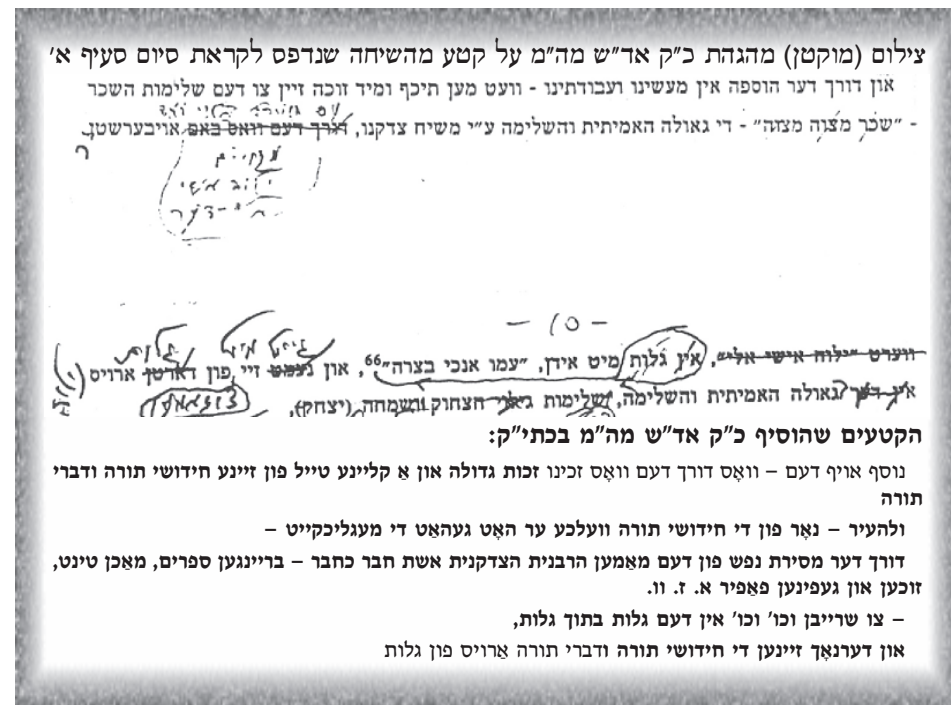 צילום (מוקטן) מהגהת כ״ק אד״ש מה״מ על קטע מהשיחה שנדפס לקראת סיום סעיף א׳
און דורך דער הוספה אין מעשינו ועבודתינו - וועט מען תיכף ומיד זוכה זיין צו דעם שלימות השכר
- ״שכר מצוה מצוה״ - די גאולה האמיתית והשלימה ע״י משיח צדקנו, דורך דעם וואס באפ אויבערשטן
- 10 -
ווערט ״ילוה אישי אלי״, אין גלות מיט אידן, ״עמו אנכי בצרה״66, און נעמט זיי פון דארטן ארויס
אין דער גאולה האמיתית והשלימה, ושלימות הצחוק והשמחה (יצחק),
הקטעים שהוסיף כ״ק אד״ש מה״מ בכתי״ק:
נוסף אויף דעם – וואָס דורך דעם וואָס זכינו זכות גדולה און אַ קליינע טייל פון זיינע חידושי תורה ודברי
תורה
ולהעיר – נאָר פון די חידושי תורה וועלכע ער האָט געהאַט די מעגליכקייט –
דורך דער מסירת נפש פון דעם מאַמען הרבנית הצדקנית אשת חבר כחבר – בריינגען ספרים, מאַכן טינט,
זוכען און געפינען פאַפיר א. ז. וו.
– צו שרייבן וכו׳ וכו׳ אין דעם גלות בתוך גלות,
און דערנאָך זיינען די חידושי תורה ודברי תורה אַרויס פון גלות